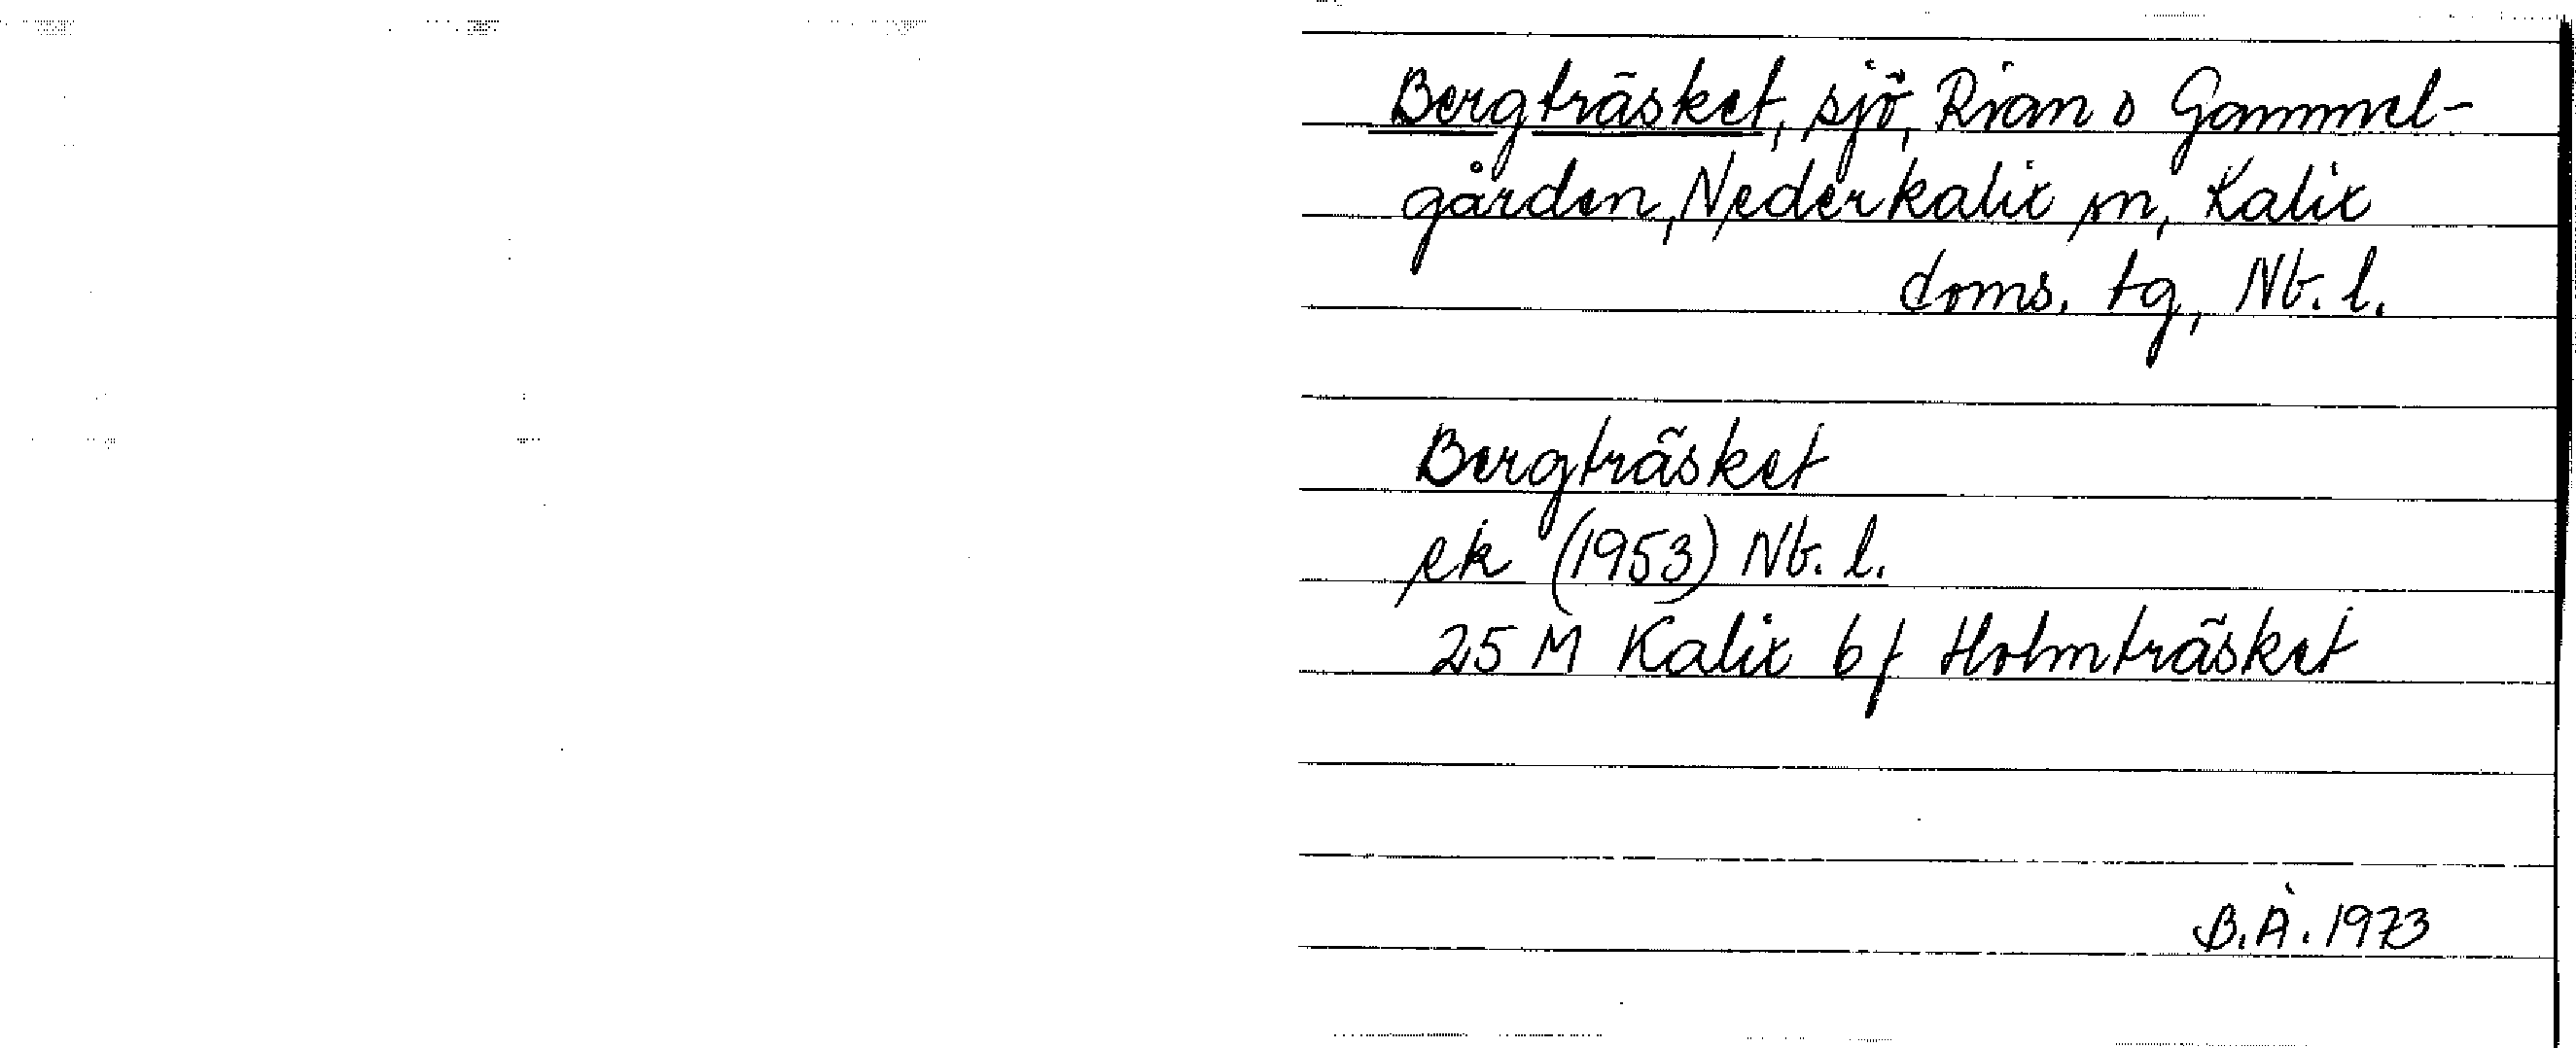 Bergträsket, sjö, Rian o Gammel-
gården, Nederkalix sn, Kalix
doms. tg, Nb. l.
Bergträsket
ek (1953) Nb. l.
25 M Kalix bf Holmträsket
B.Å. 1973